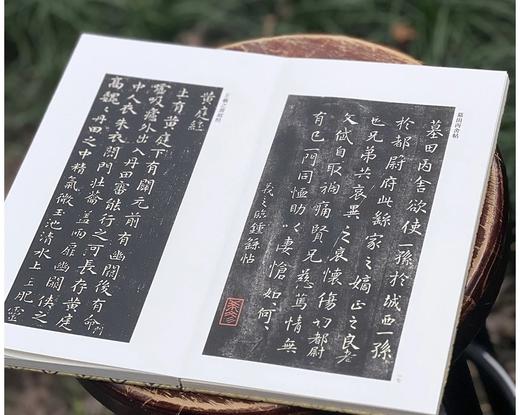 墓田丙舍帖
墓田丙舍欲使一孫於城西一孫
於都尉府此繇家之嫡正之良者
也兄弟共哀異之哀懷傷切都尉
文岱自取禍痛賢兄慈篤情無
有已一門同恤助以悽愴如何〻
羲之臨鍾繇帖
黄庭經
上有黄庭下有關元前有幽闕後有命
噓吸廬外出入丹田審能行之可長存黄庭
中人衣朱衣關門壯籥蓋兩扉幽闕俠之
高魏〻丹田之中精氣微玉池清水上生肥靈